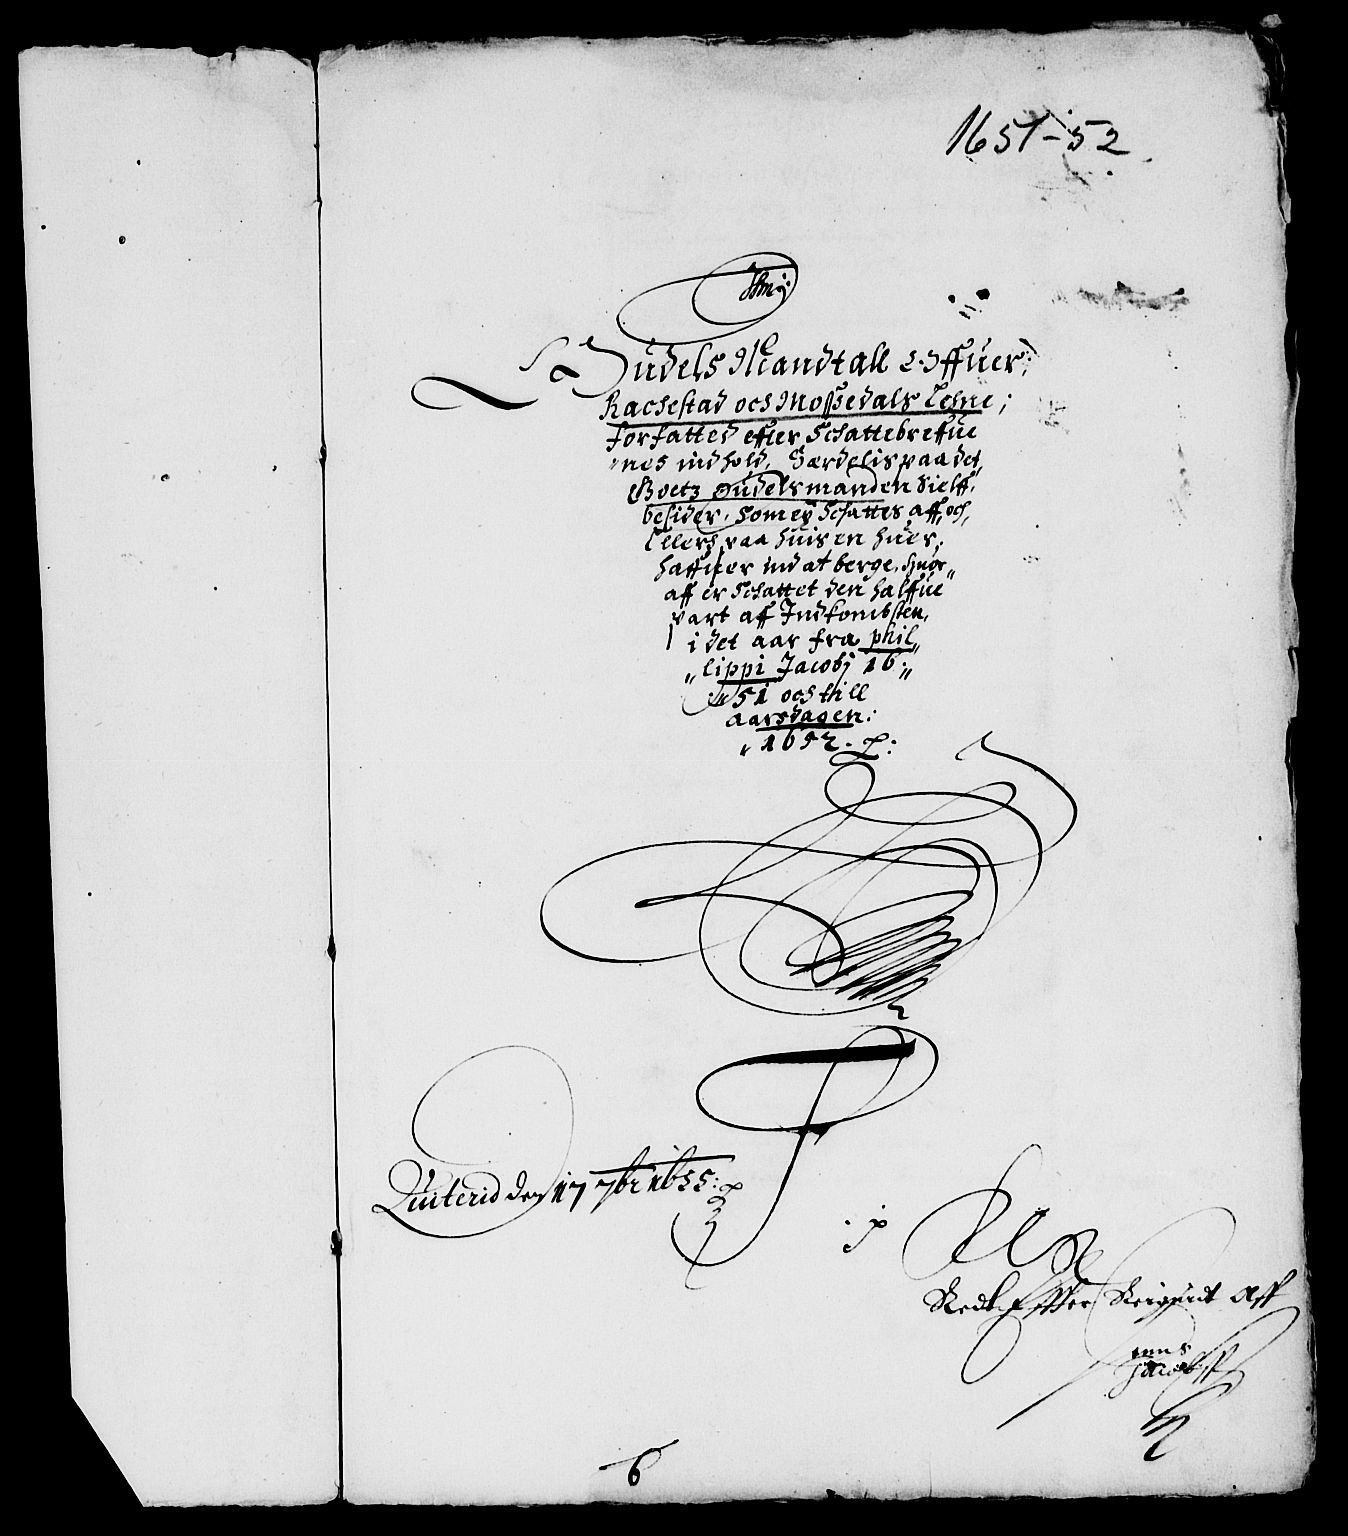 1651-52
Odels Mandtall Offuer
Rachestad och Mossedals Lehne;
forfatted effter Schattebreffue
nes indhold, Særdelis paa det
Goetz Odelsmanden Sielff
besider, som ey Schattes aff, och
Ellers paa huis en huer,
haffuer ind at berge, huor
aff er Schattet den halffue
part aff Indkombsten,
i det aar fra phil„
„lippi Jacobj 16„
51 och till
aarsdagen:
„1652.
Quiterid den 17 7br 1655:
Effter Aff
Jacobsf
6